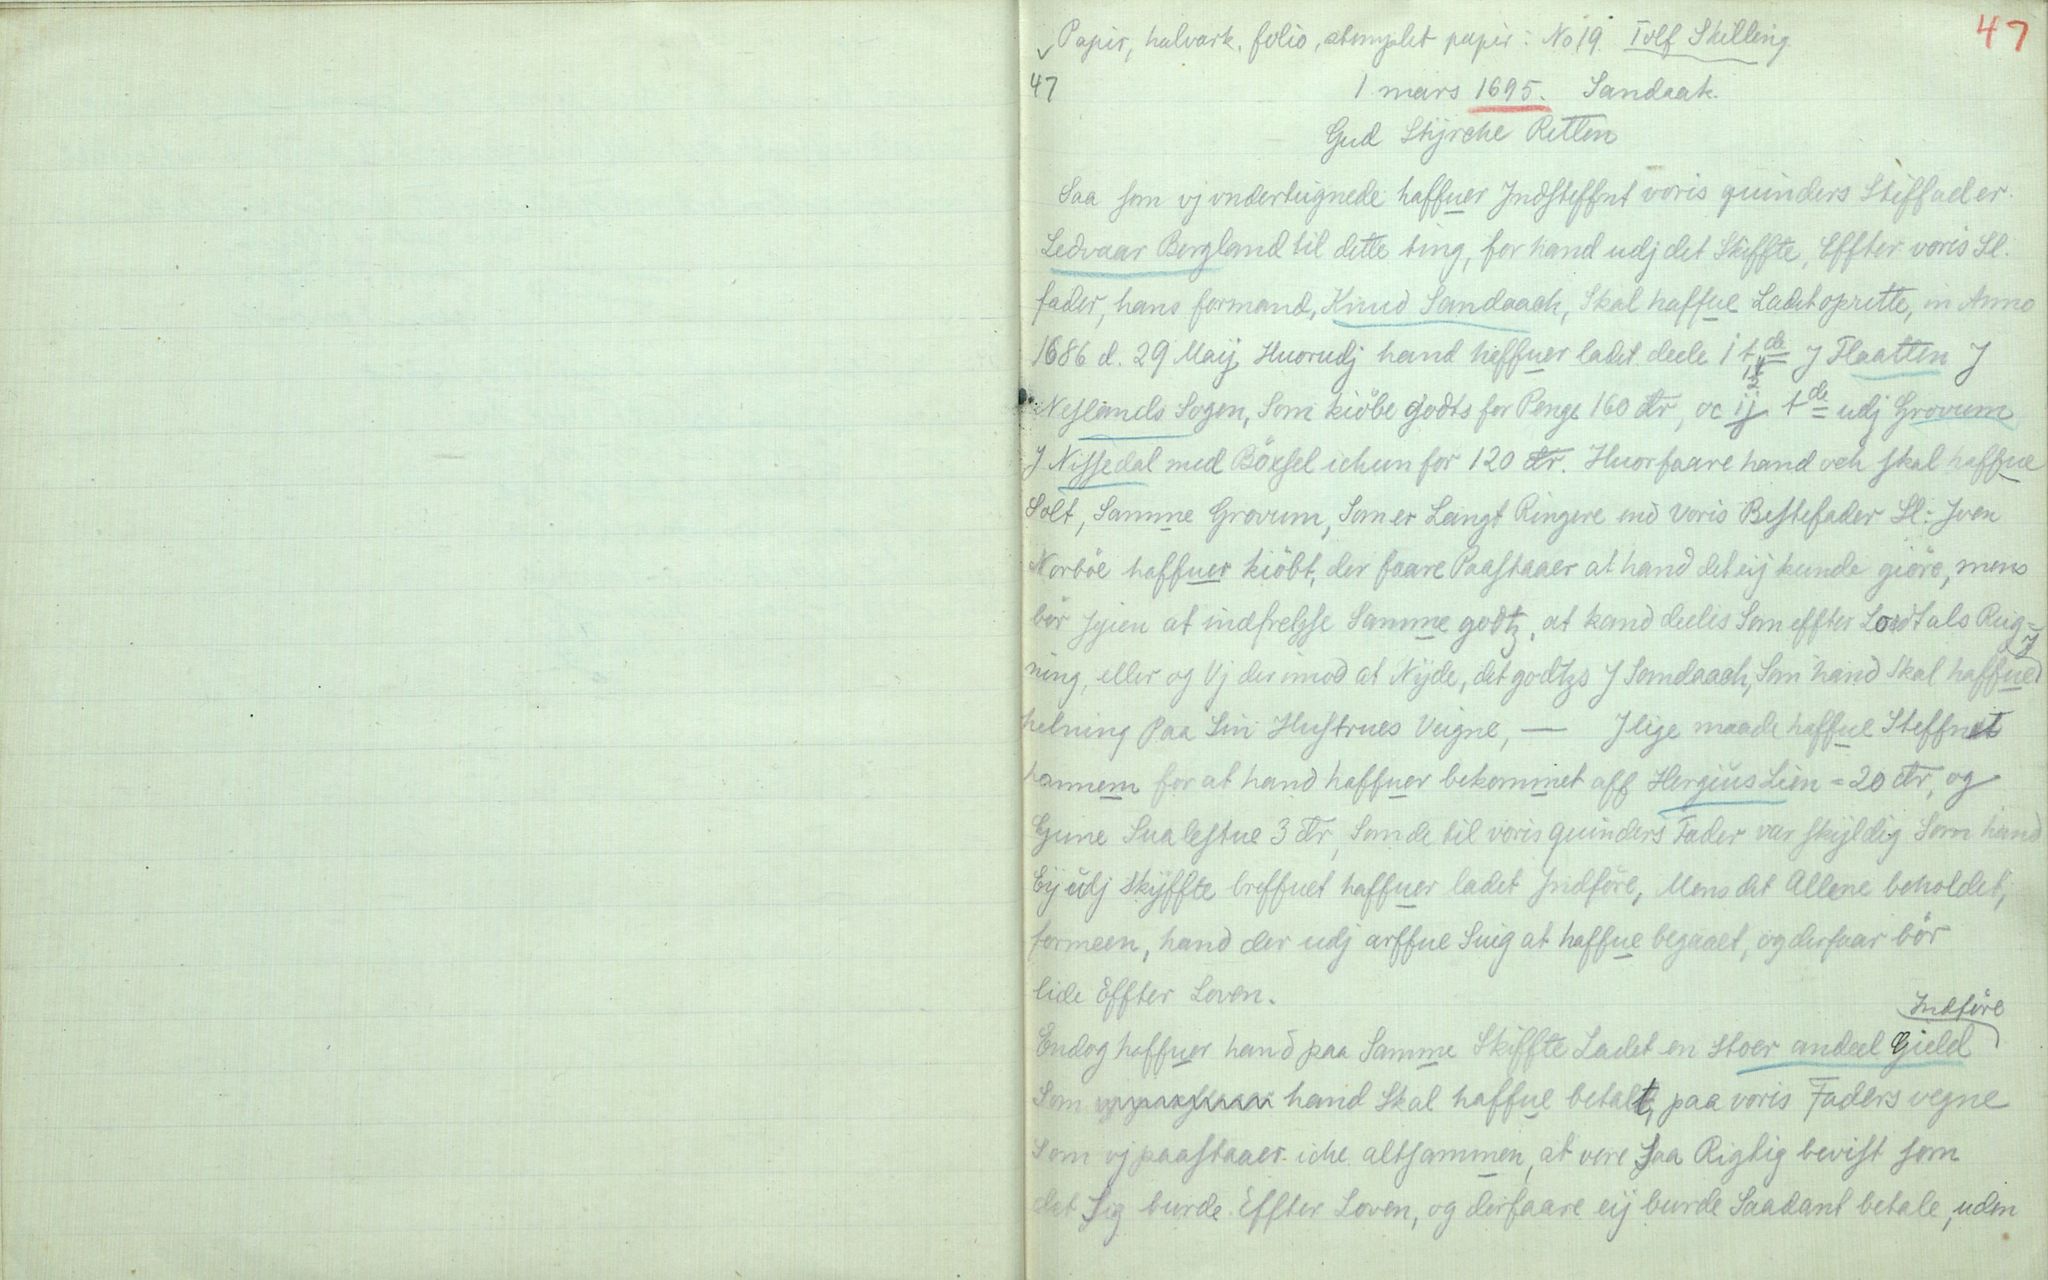 Papir, halvark, folio, stemplet papir: No 19. Tolf Skilling
47
47
1 mars 1695. Sandaak.
Gud Styrche Retten
Saa som vj vnderteignede haffuer Jndsteffnt voris quinders Stiffader.
Ledvaar Bergland til dette ting, for hand udj det Skiffte, Effter voris Sl.
fader, hans formand, Knud Sandaach, Skal haffue Ladet oprette, in Anno
1686 d. 29 Maij, Huorudj hand heffuer ladet deele i t de J Flaatten J
1½
Neslands Sogen, Som kiöbe godts for Penge 160 dr, oc ij t de udj Grovum
J Nissedal med Böxsel ichun for 120 dr. Huorfaare hand och skal haffue
Solt, Samme Grovum, Som er Langt Ringere end voris Bestefader Sl: Jven
Norböe haffuer kiöbt, der faare Paastaaer at hand det eij kunde giöre, mens
bör Jgien at indfrelsse Samme godtz, at kand deelis Som effter Lodtals Reig=
ning, eller og Vj der imod at Nÿde, det godtzs J Sandaach, Som hand Skal haffue J
helning Paa Sin Hustrues Veigne, — Jlige maade haffue Steffnet
hannem for at hand haffuer bekommet aff Hergius Lien = 20 dr, og
Gune Sualestue 3 dr, Som de til voris quinders Fader var skÿldig Som hand
Eij udj Skÿffte breffuet haffuer ladet Jndföre, Mens det Allene beholdet,
formeen, hand der udj arffue Suig at haffue begaaet, og derfaar bör
lide Effter Loven.
Indföre
Endog haffuer hand paa Samme Skiffte Ladet en stoer andeel Gield
Som hand Skal haffue betalt, paa voris Faders vegne
Som vj paastaaer iche altsammen, at vere Saa Rigtig bevist som
det Sig burde Effter Loven, og derfaare eij burde Saadant betale, uden